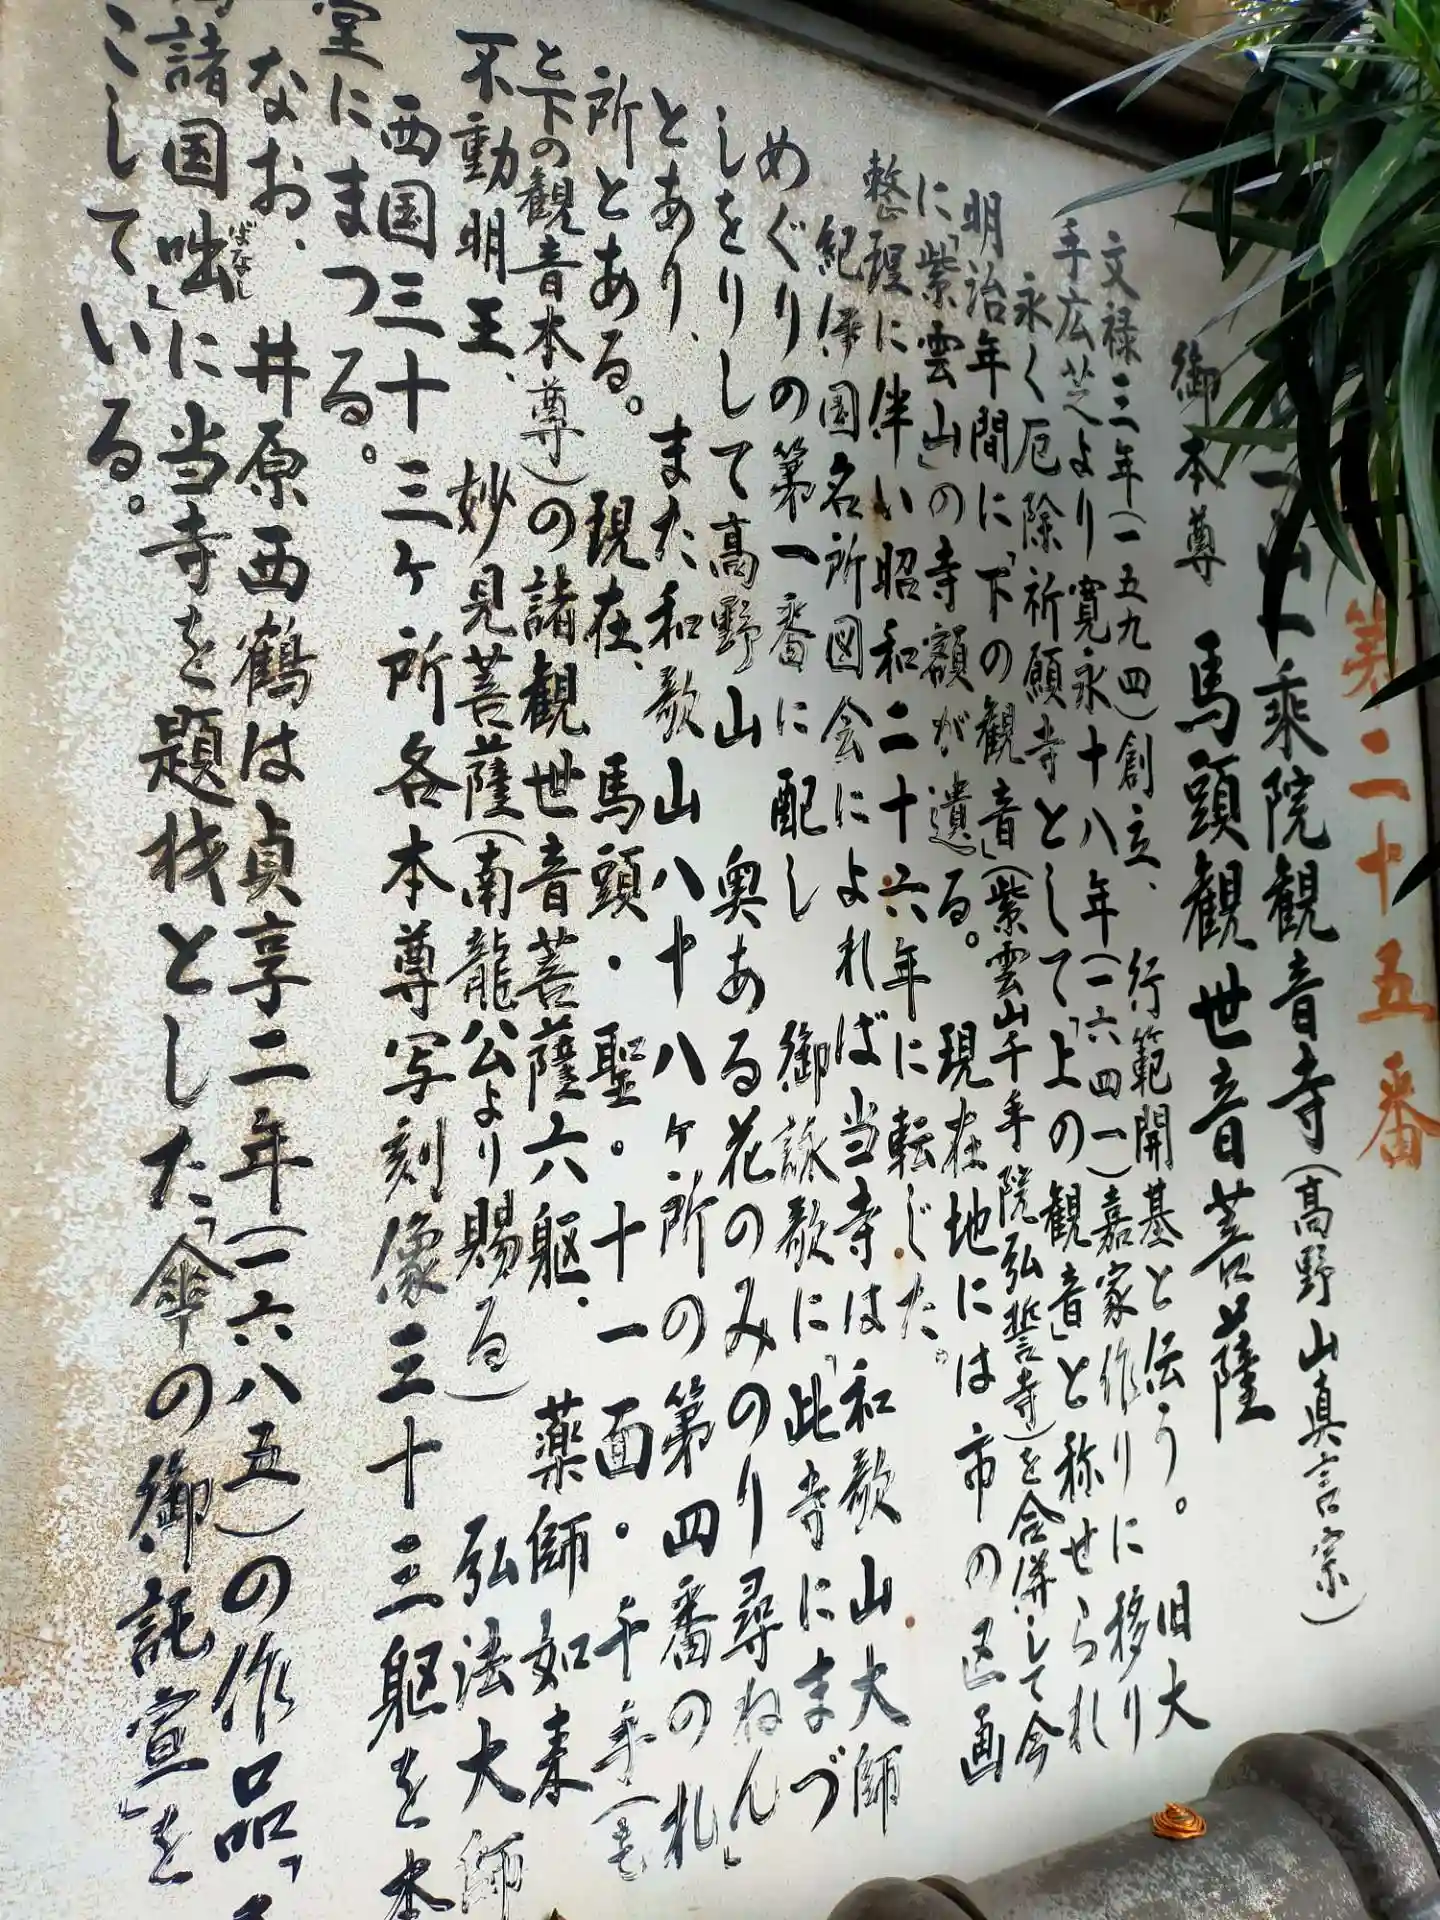 第二十五番
山一乗院観音寺(高野山真言宗)
御本尊　馬頭観世音菩薩
文禄三年(一五九四)創立、　行範開基と伝う。　旧大
手広芝より寛永十八年(一六四一)嘉家作りに移り
永く厄除祈願寺として「上の観音」と称せられ
明治年間に「下の観音」(紫雲山千手院弘誓寺)を合併して今
に「紫雲山」の寺額が遺る。　現在地には市の区画
整理に伴い昭和二十六年に転じた。
紀伊国名所図会によれば当寺は和歌山大師
めぐりの第一番に配し　御詠歌に「此寺にまづ
しをりして高野山　奥ある花のみのり尋ねん」
とあり、　また和歌山八十八ヶ所の第四番の札
所とある。　現在、　馬頭・聖・十一面・千手(もも
と下の観音本尊)の諸観世音菩薩六躯、　薬師如来
不動明王、　妙見菩薩(南龍公より賜る)　弘法大師
西国三十三ヶ所各本尊写刻像三十三躯を本
堂にまつる。
なお、　井原西鶴は貞享二年(一六八五)の作品「
諸国咄」に当寺を題材とした「傘の御託宣」を
ばなし
こしている。